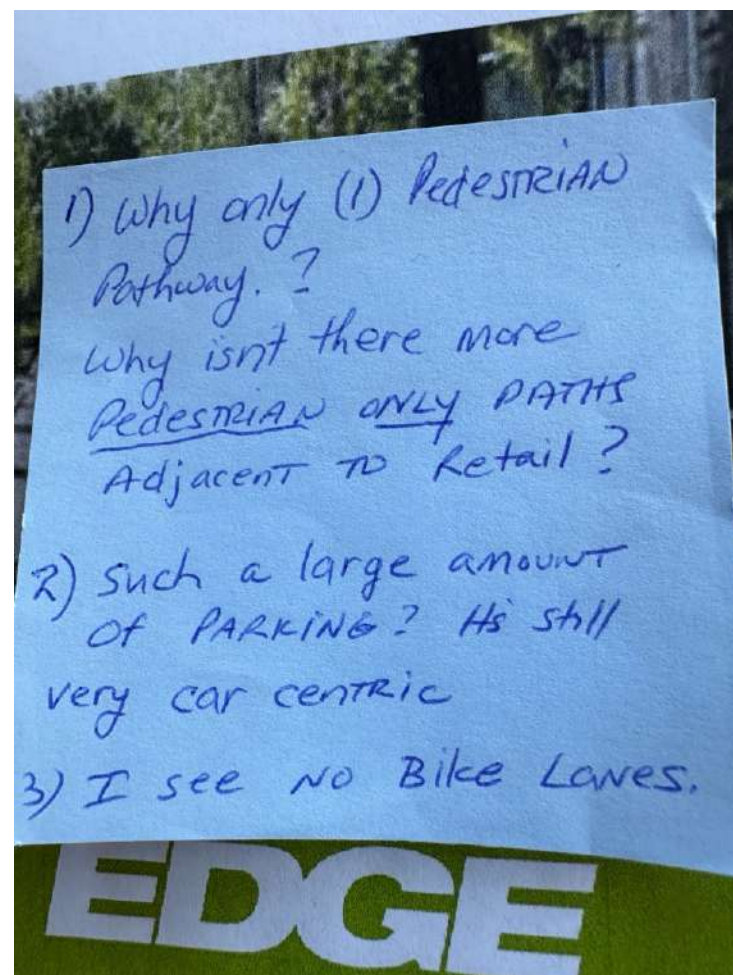 1) Why only (1) Pedestrian
Pathway. ?
Why isn't there more
Pedestrian only PATHS
Adjacent to Retail ?
2) Such a large amount
of PARKING? Its still
very car centric
3) I see NO Bike Lanes.
EDGE